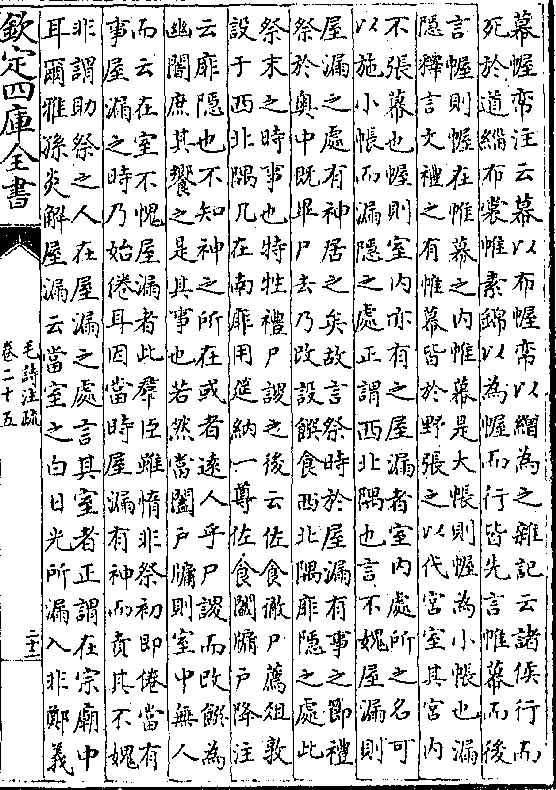 幕幄帟注云幕以布幄帟以繒為之雜記云諸侯行而
死於道緇布裳帷素錦以為幄而行皆先言帷幕而後
言幄則幄在帷幕之内帷幕是大帳則幄為小帳也漏
隱釋言文禮之有帷幕皆於野張之以代宫室其宫内
不張幕也幄則室内亦有之屋漏者室内處所之名可
以施小帳而漏隱之處正謂西北隅也言不媿屋漏則
屋漏之處有神居之矣故言祭時於屋漏有事之即禮
祭於奥中既畢尸去乃改設饌食西北隅厞隱之處此
祭末之時事也特牲禮尸謖之後云佐食徹尸薦俎敦
設于西北隅几在南厞用筵納一尊佐食闔牖戸降注
云厞隱也不知神之所在或者逺人乎尸謖而改饌為
幽闇庶其饗之是其事也若然當闔戸牖則室中無人
而云在室不愧屋漏者此羣臣雖惰非祭初即倦當有
事屋漏之時乃始倦耳因當時屋漏有神而責其不媿
非謂助祭之人在屋漏之處言其室者正謂在宗廟中
耳爾雅孫炎解屋漏云當室之白日光所漏入非鄭義
欽定四庫全書
毛詩注疏
卷二十五